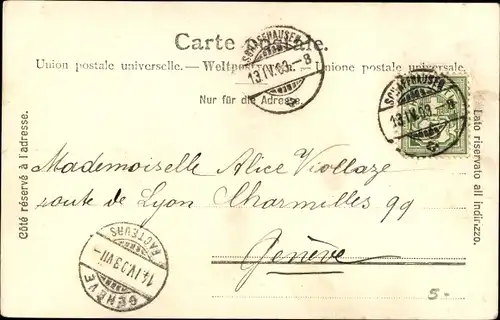 Carte postale.
Union postale universelle. — Weltpostverein. — Unione postale universale.
Nur für die Adresse.
SCHAFFHAUSEN
13.IV.03.-8
SCHAFFHAUSEN
13.IV.03.-8
Côté réservé à l'adresse.
Lato riservato all indirizzo.
Mademoiselle Alice Viollaze
route de Lyon Charmilles 99
Genève
GENÈVE
14.IV.03.VII-
FACTEURS
5.-